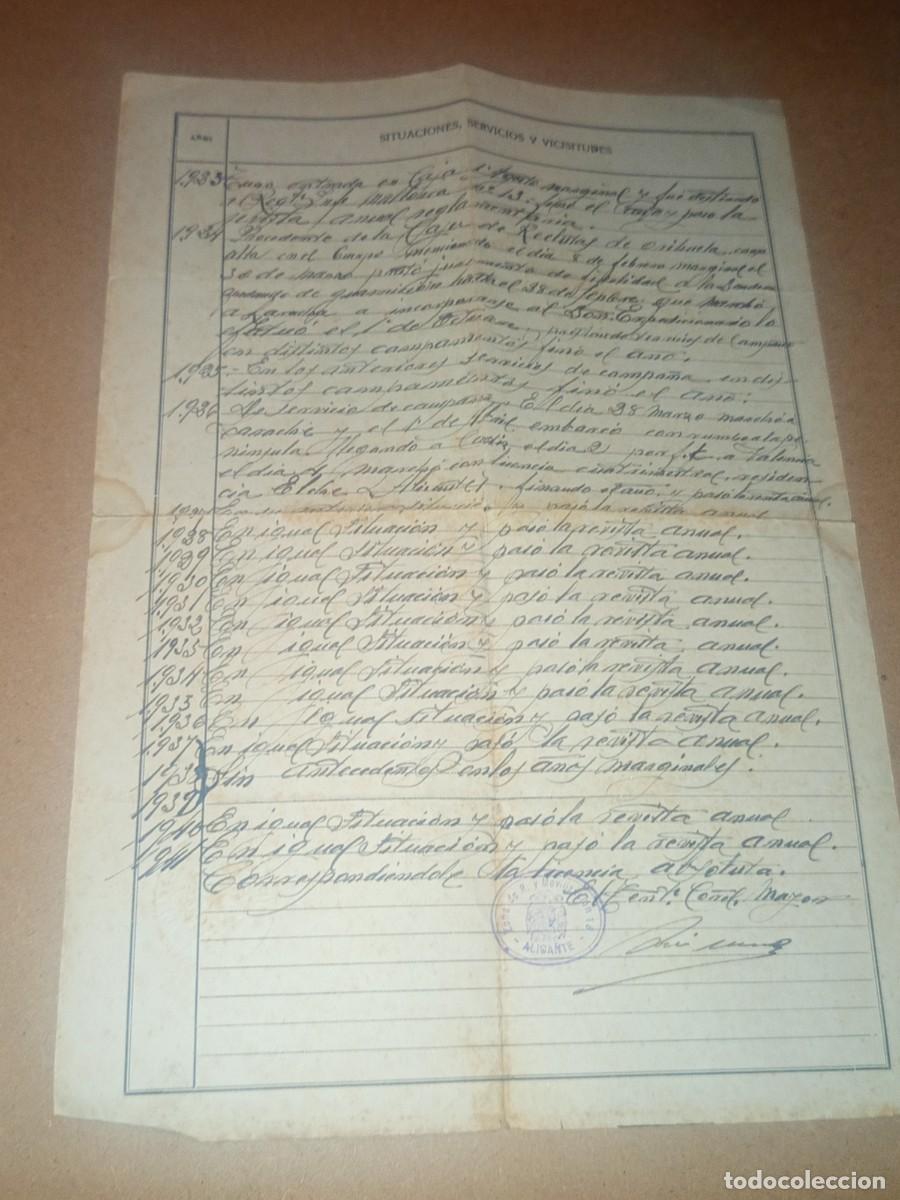 AÑOS
SITUACIONES, SERVICIOS Y VICISITUDES
1.923 Tuvo entrada en Caja 1º Agosto marginal y fué destinado
a Regtº Infª Mallorca nº 13. finó el año y pasó la
revista anual reglamentaria.
1924 Procedente de la Caja de Reclutas de Orihuela, causa
alta en el Cuerpo el día 8 de febrero marginal el
30 de Marzo prestó juramento de fidelidad a la Bandera
quedando de guarnición hasta el 28 de Sepbre. que marchó
a Larache a incorporarse al Bon. Expedicionario lo
efectuó el 1º de prestando servicios de Campaña
en distintos campamentos finó el año.
1.925 - En los anteriores servicios de campaña en dis
tintos campamentos finó el año.
1.926 De servicio de campaña. El día 28 Marzo marchó a
Larache y el 1º de Abril embarcó con rumbo a la pe
ninsula llegando a Cádiz el día 2 por f.c. a Valencia
el día 4 marchó con licencia cuatrimestral, residen
cia Elche (Alicante). finando el año y pasó la revista anual.
192 situación pasó la revista anual
1.928 En igual situación y pasó la revista anual.
1.929 En igual situación y pasó la revista anual.
1.930 En igual situación y pasó la revista anual.
1.931 En igual situación y pasó la revista anual.
1.932 En igual situación y pasó la revista anual.
1.933 En igual situación y pasó la revista anual.
1.934 En igual situación y pasó la revista anual.
1935 En igual situación y pasó la revista anual.
1.936 En igual situación y pasó la revista anual.
1.937 En igual situación y pasó la revista anual.
1938 Sin antecedentes en los años marginales.
1939
1940 En igual situación y pasó la revista anual
1941 En igual situación y pasó la revista anual.
Correspondiéndole la licencia absoluta.
El Tente. Cord. Mayor
ALICANTE
todocoleccion